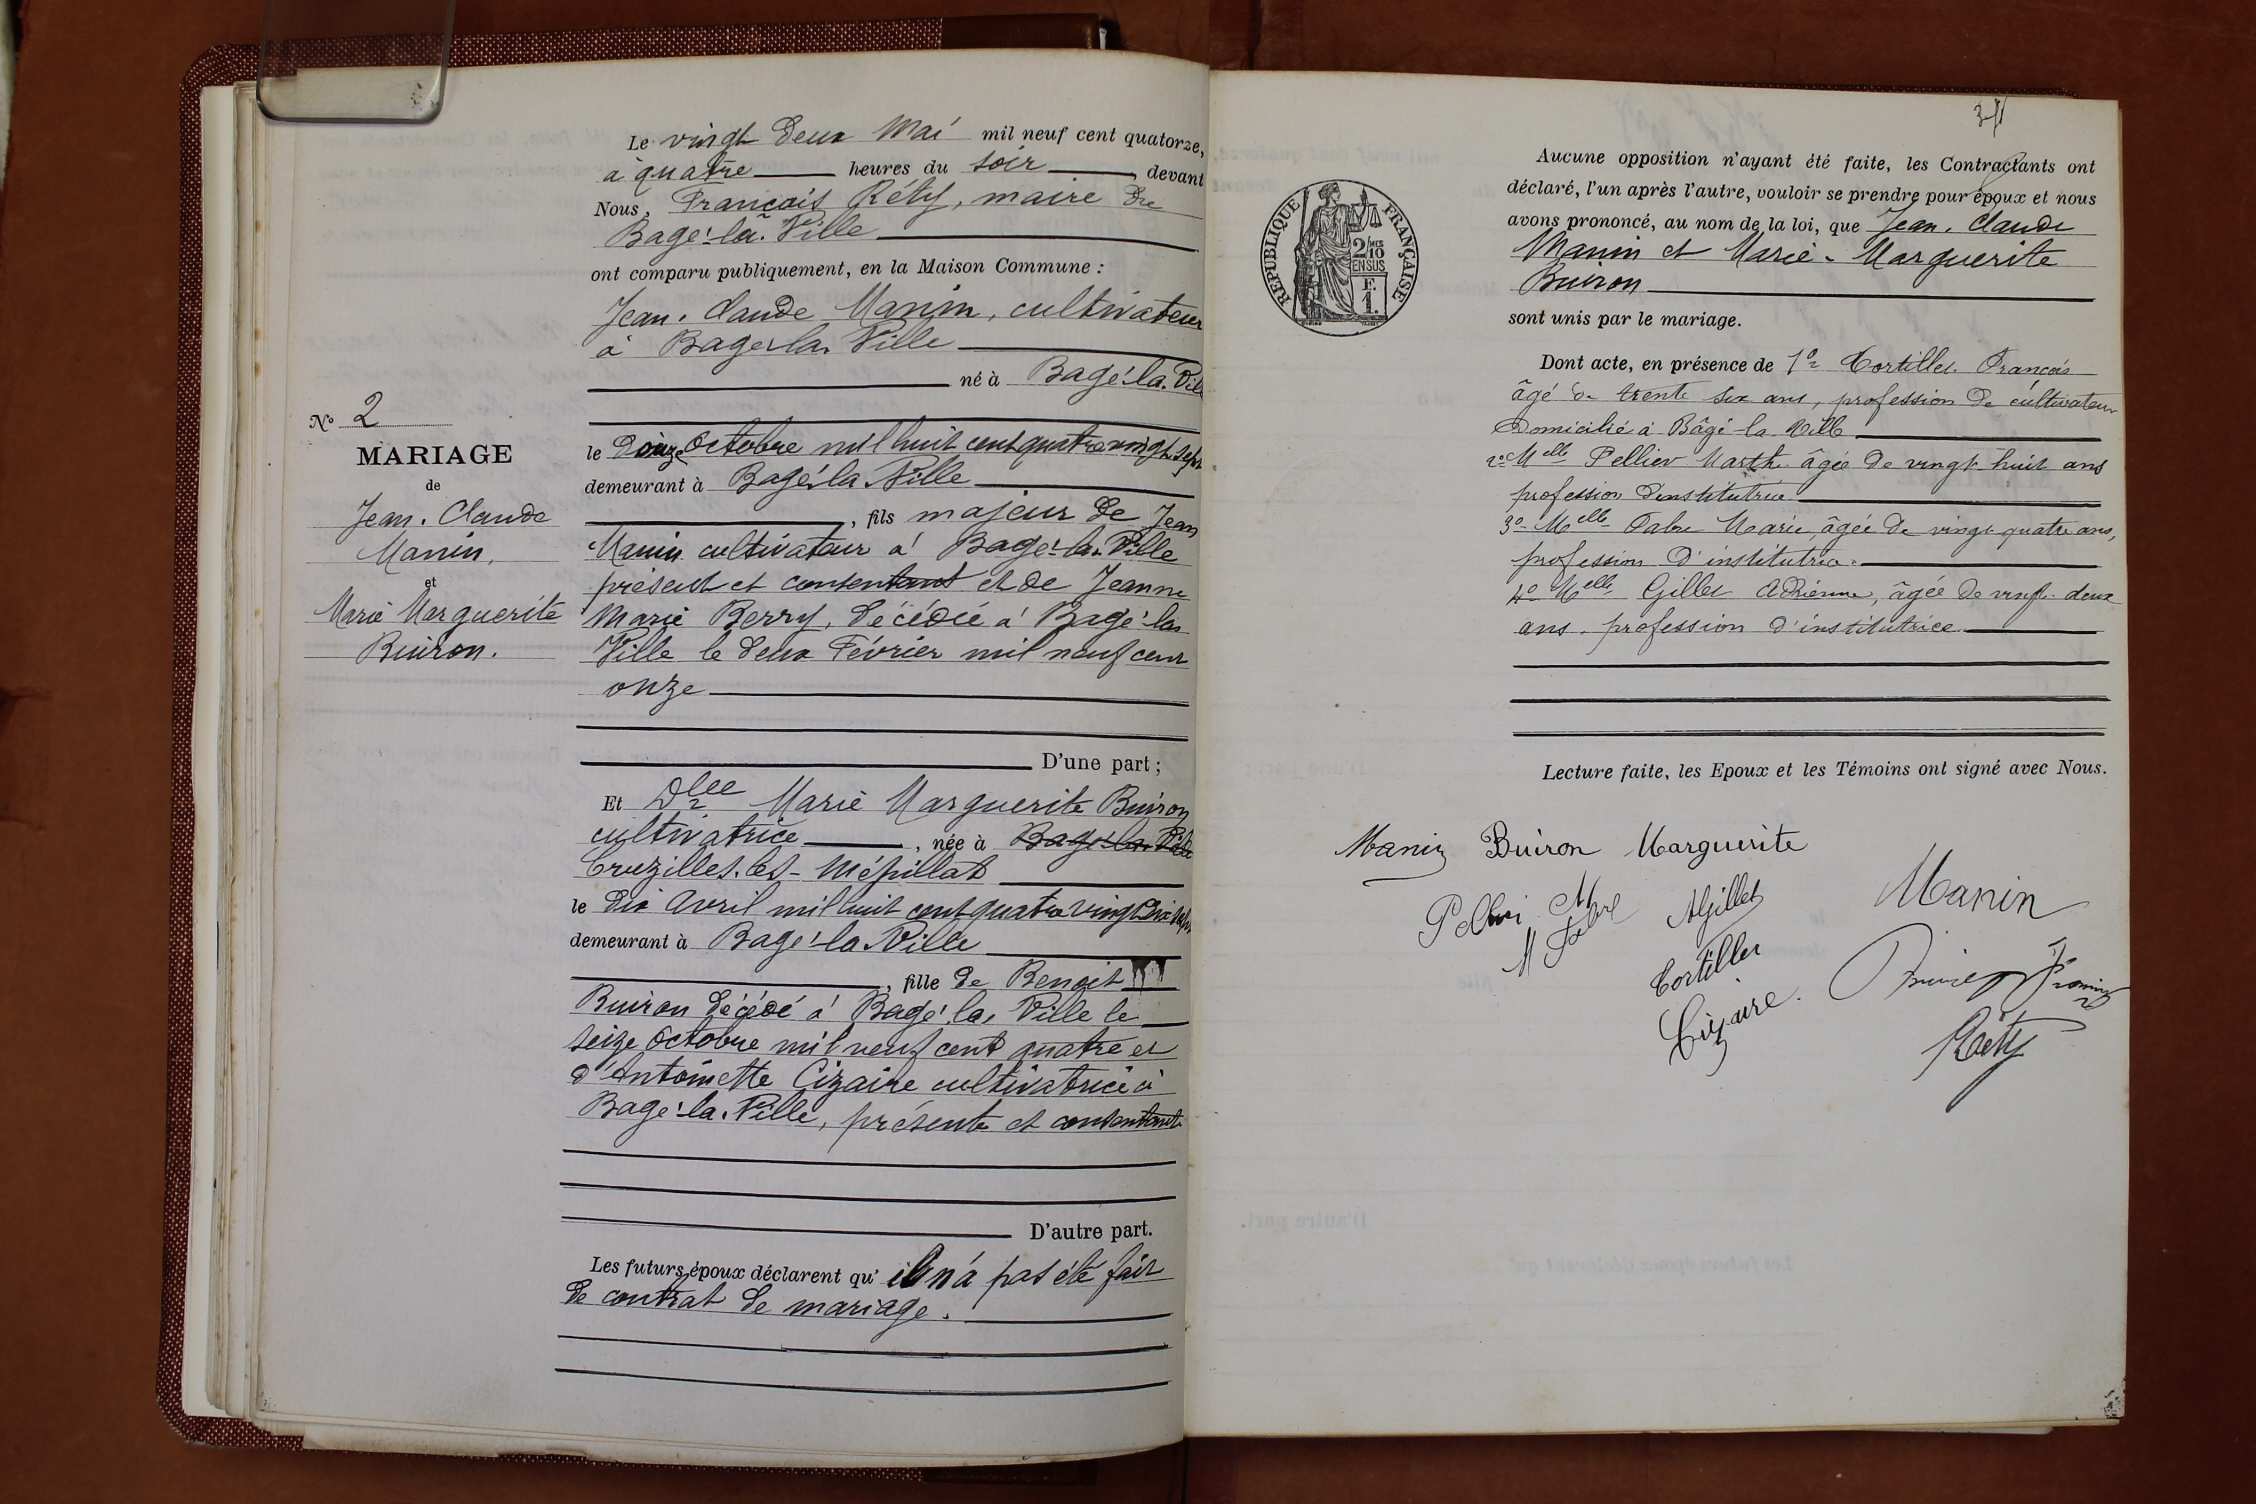 Le vingt deux Mai mil neuf cent quatorze,
à quatre heures du soir, devant
Nous, François Réty, maire de
Bagé-la-Ville
ont comparu publiquement, en la Maison Commune :
Jean-Claude Manin, cultivateur
à Bagé-la-Ville
né à Bagé-la-Ville
No 2
MARIAGE
de
Jean-Claude
Manin,
et
Marie Marguerite
Buiron.
le douze Octobre mil huit cent quatre vingt sept
demeurant à Bagé-la-Ville
, fils majeur de Jean
Manin cultivateur à Bagé-la-Ville
présent et consentant et de Jeanne
Marie Berry, décédée à Bagé-la-
Ville le deux Février mil neuf cent
onze
D'une part ;
Et Dlle Marie Marguerite Buiron
cultivatrice, née à Bagé-la-Ville
Cruzilles-les-Mépillat
le dix Avril mil huit cent quatre vingt dix sept
demeurant à Bagé-la-Ville
, fille de Benoit
Buiron décédé à Bagé-la-Ville le
seize Octobre mil neuf cent quatre et
d'Antoinette Cizaire cultivatrice à
Bagé-la-Ville, présente et consentante
D'autre part.
Les futurs époux déclarent qu'il n'a pas été fait
de contrat de mariage.
RÉPUBLIQUE FRANÇAISE
2/10
EN SUS
F.
1.
Aucune opposition n'ayant été faite, les Contractants ont
déclaré, l'un après l'autre, vouloir se prendre pour époux et nous
avons prononcé, au nom de la loi, que Jean-Claude
Manin et Marie-Marguerite
Buiron
sont unis par le mariage.
Dont acte, en présence de 1o Cortillet François
âgé de trente six ans, profession de cultivateur
domicilié à Bâgé-la-Ville
2o Melle Pellier Marthe âgée de vingt huit ans
profession d'institutrice
3o Melle Fabre Marie, âgée de vingt quatre ans,
profession d'institutrice.
4o Melle Gillet Adrienne, âgée de vingt-deux
ans, profession d'institutrice
Lecture faite, les Epoux et les Témoins ont signé avec Nous.
Manin Buiron Marguerite
Manin
Pellier M
M Fabre
A Gillet
Cortillet
Cizaire.
Réty